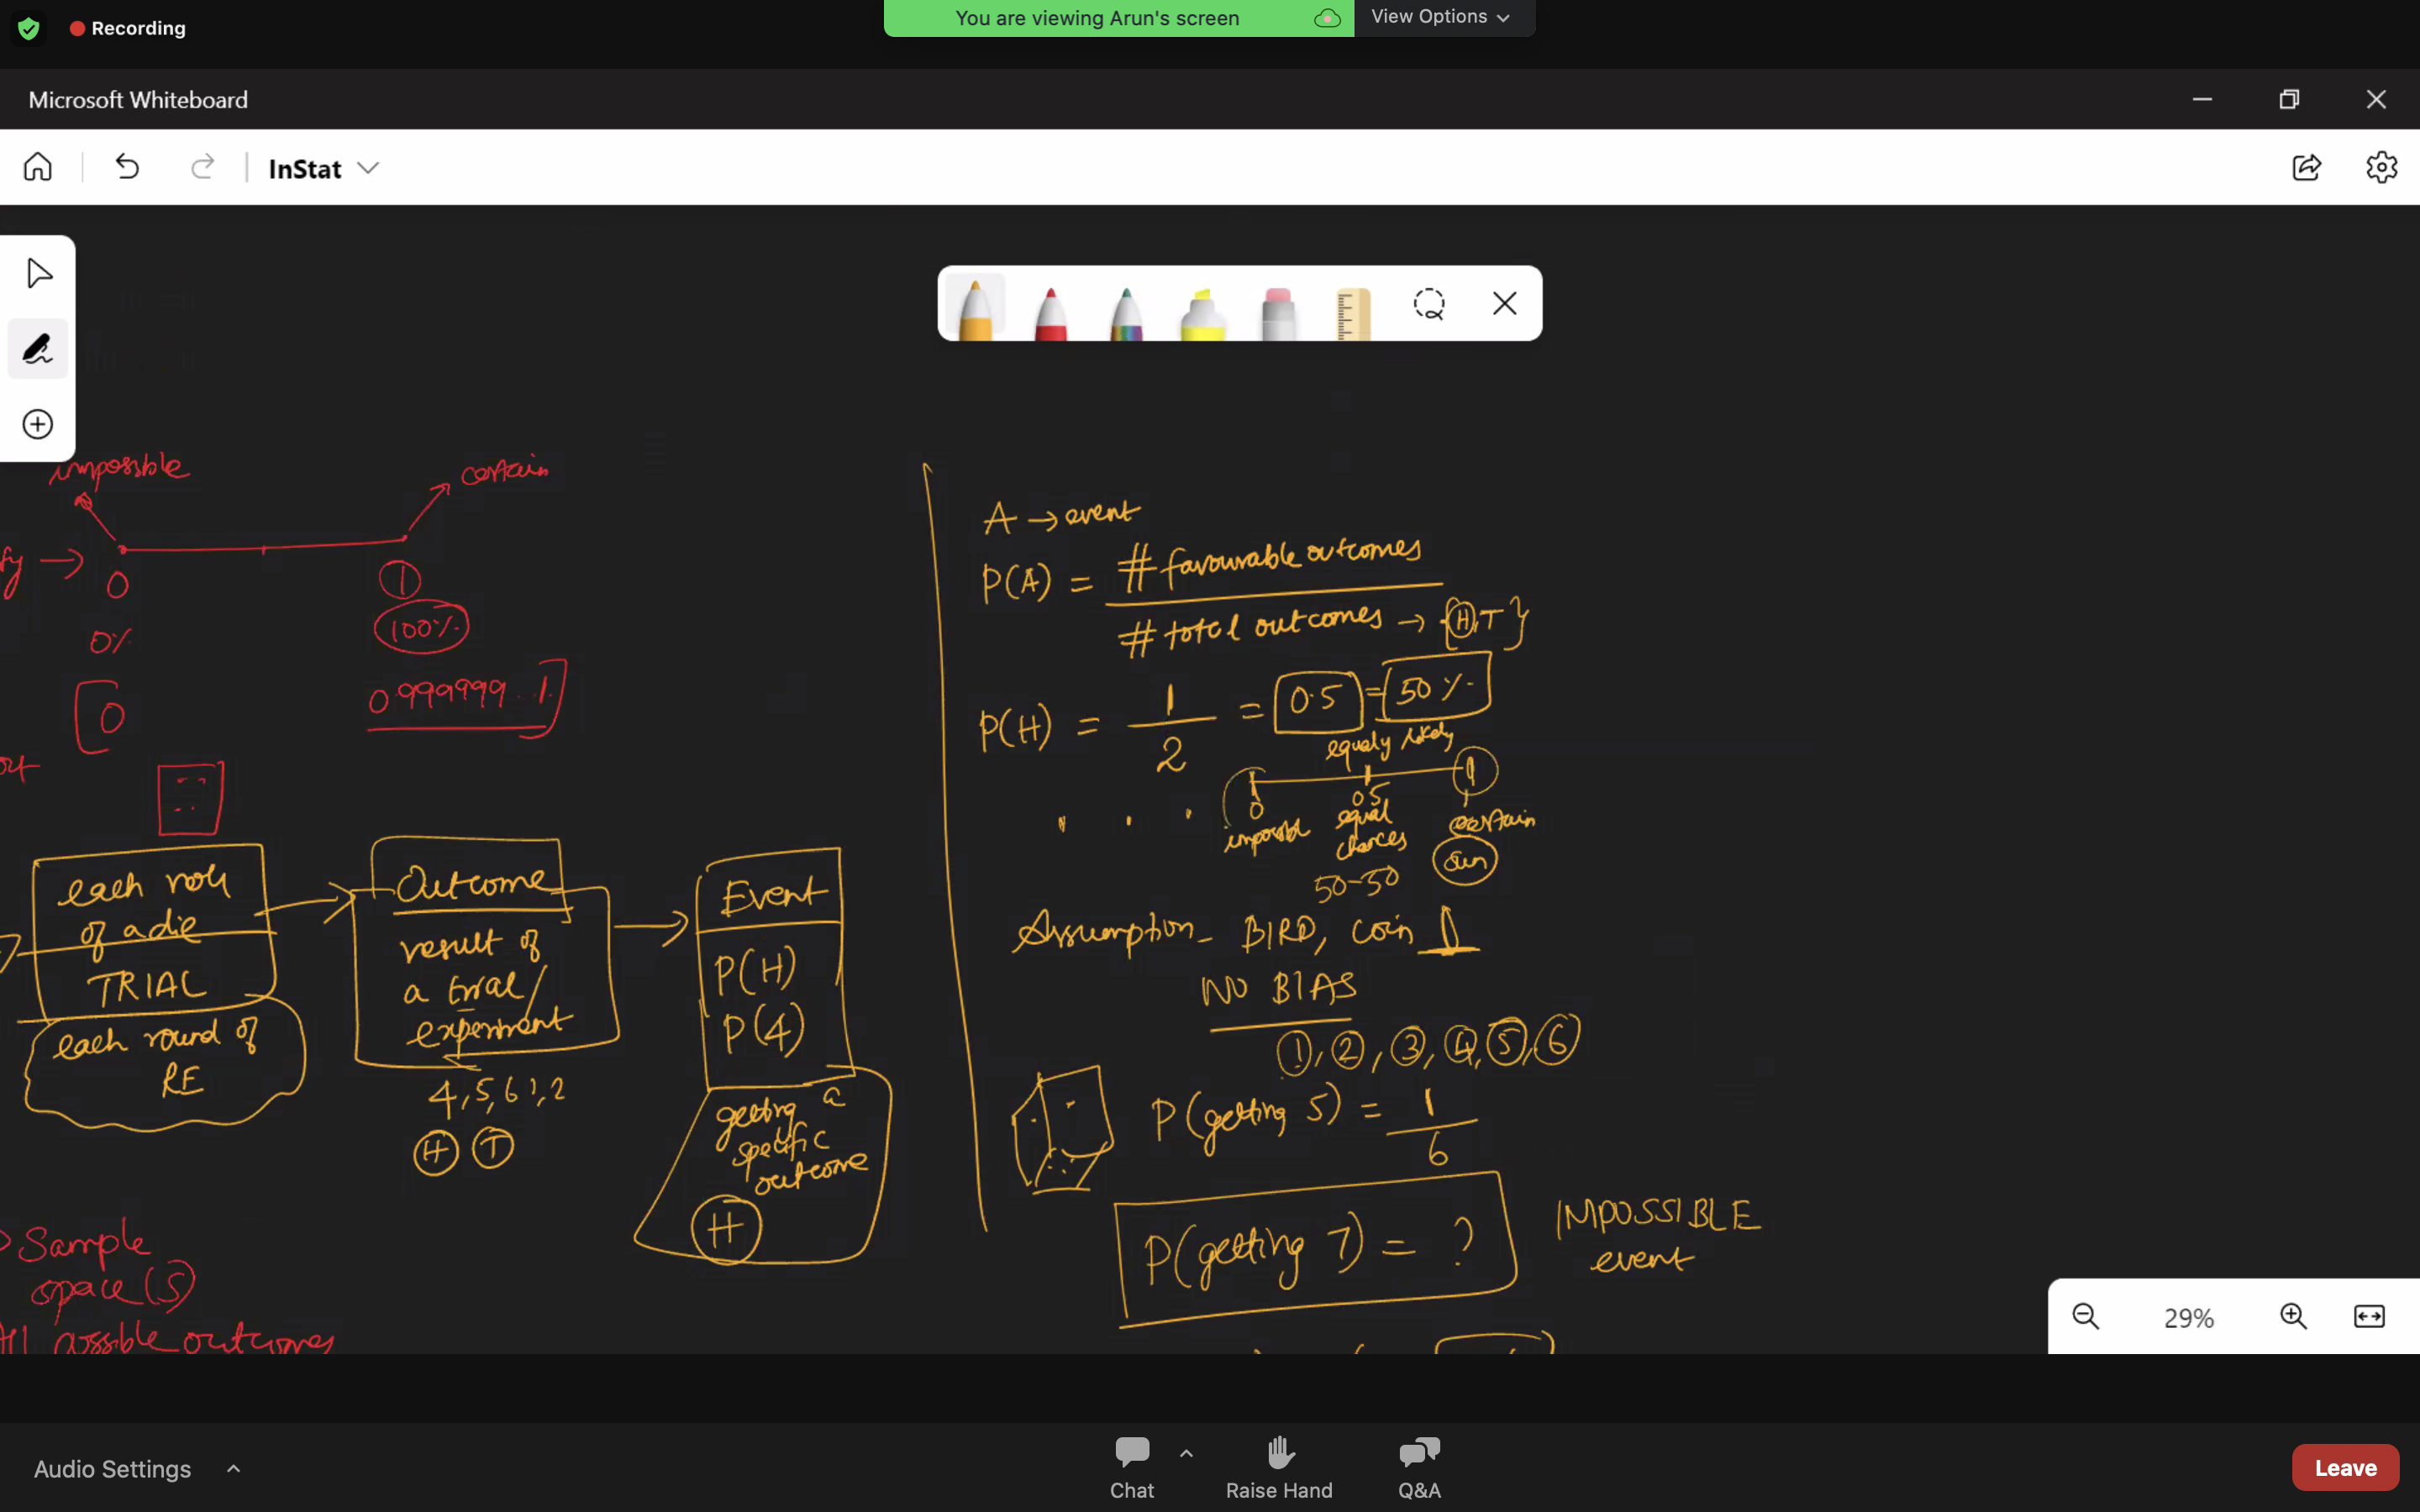 Recording
You are viewing Arun's screen
View Options
Microsoft Whiteboard
InStat
impossible
certain
fy → 0
1
0%
100%
0
0.999999..1
each roll
of a die
TRIAL
each round of
RE
Outcome
result of
a trial/
experiment
4,5,6 1,2
H T
Event
P(H)
P(4)
getting a
specific
outcome
H
Sample
space (S)
possible outcomes
A → event
P(A) = # favourable outcomes
# total outcomes → {H,T}
P(H) = 1
2
= 0.5 = 50%
equally likely
0 0.5 1
equal
chances
certain
sun
50-50
Assumption - BIRD, coin
NO BIAS
1, 2, 3, 4, 5, 6
P(getting 5) = 1
6
P(getting 7) = ?
IMPOSSIBLE
event
29%
Audio Settings
Chat
Raise Hand
Q&A
Leave